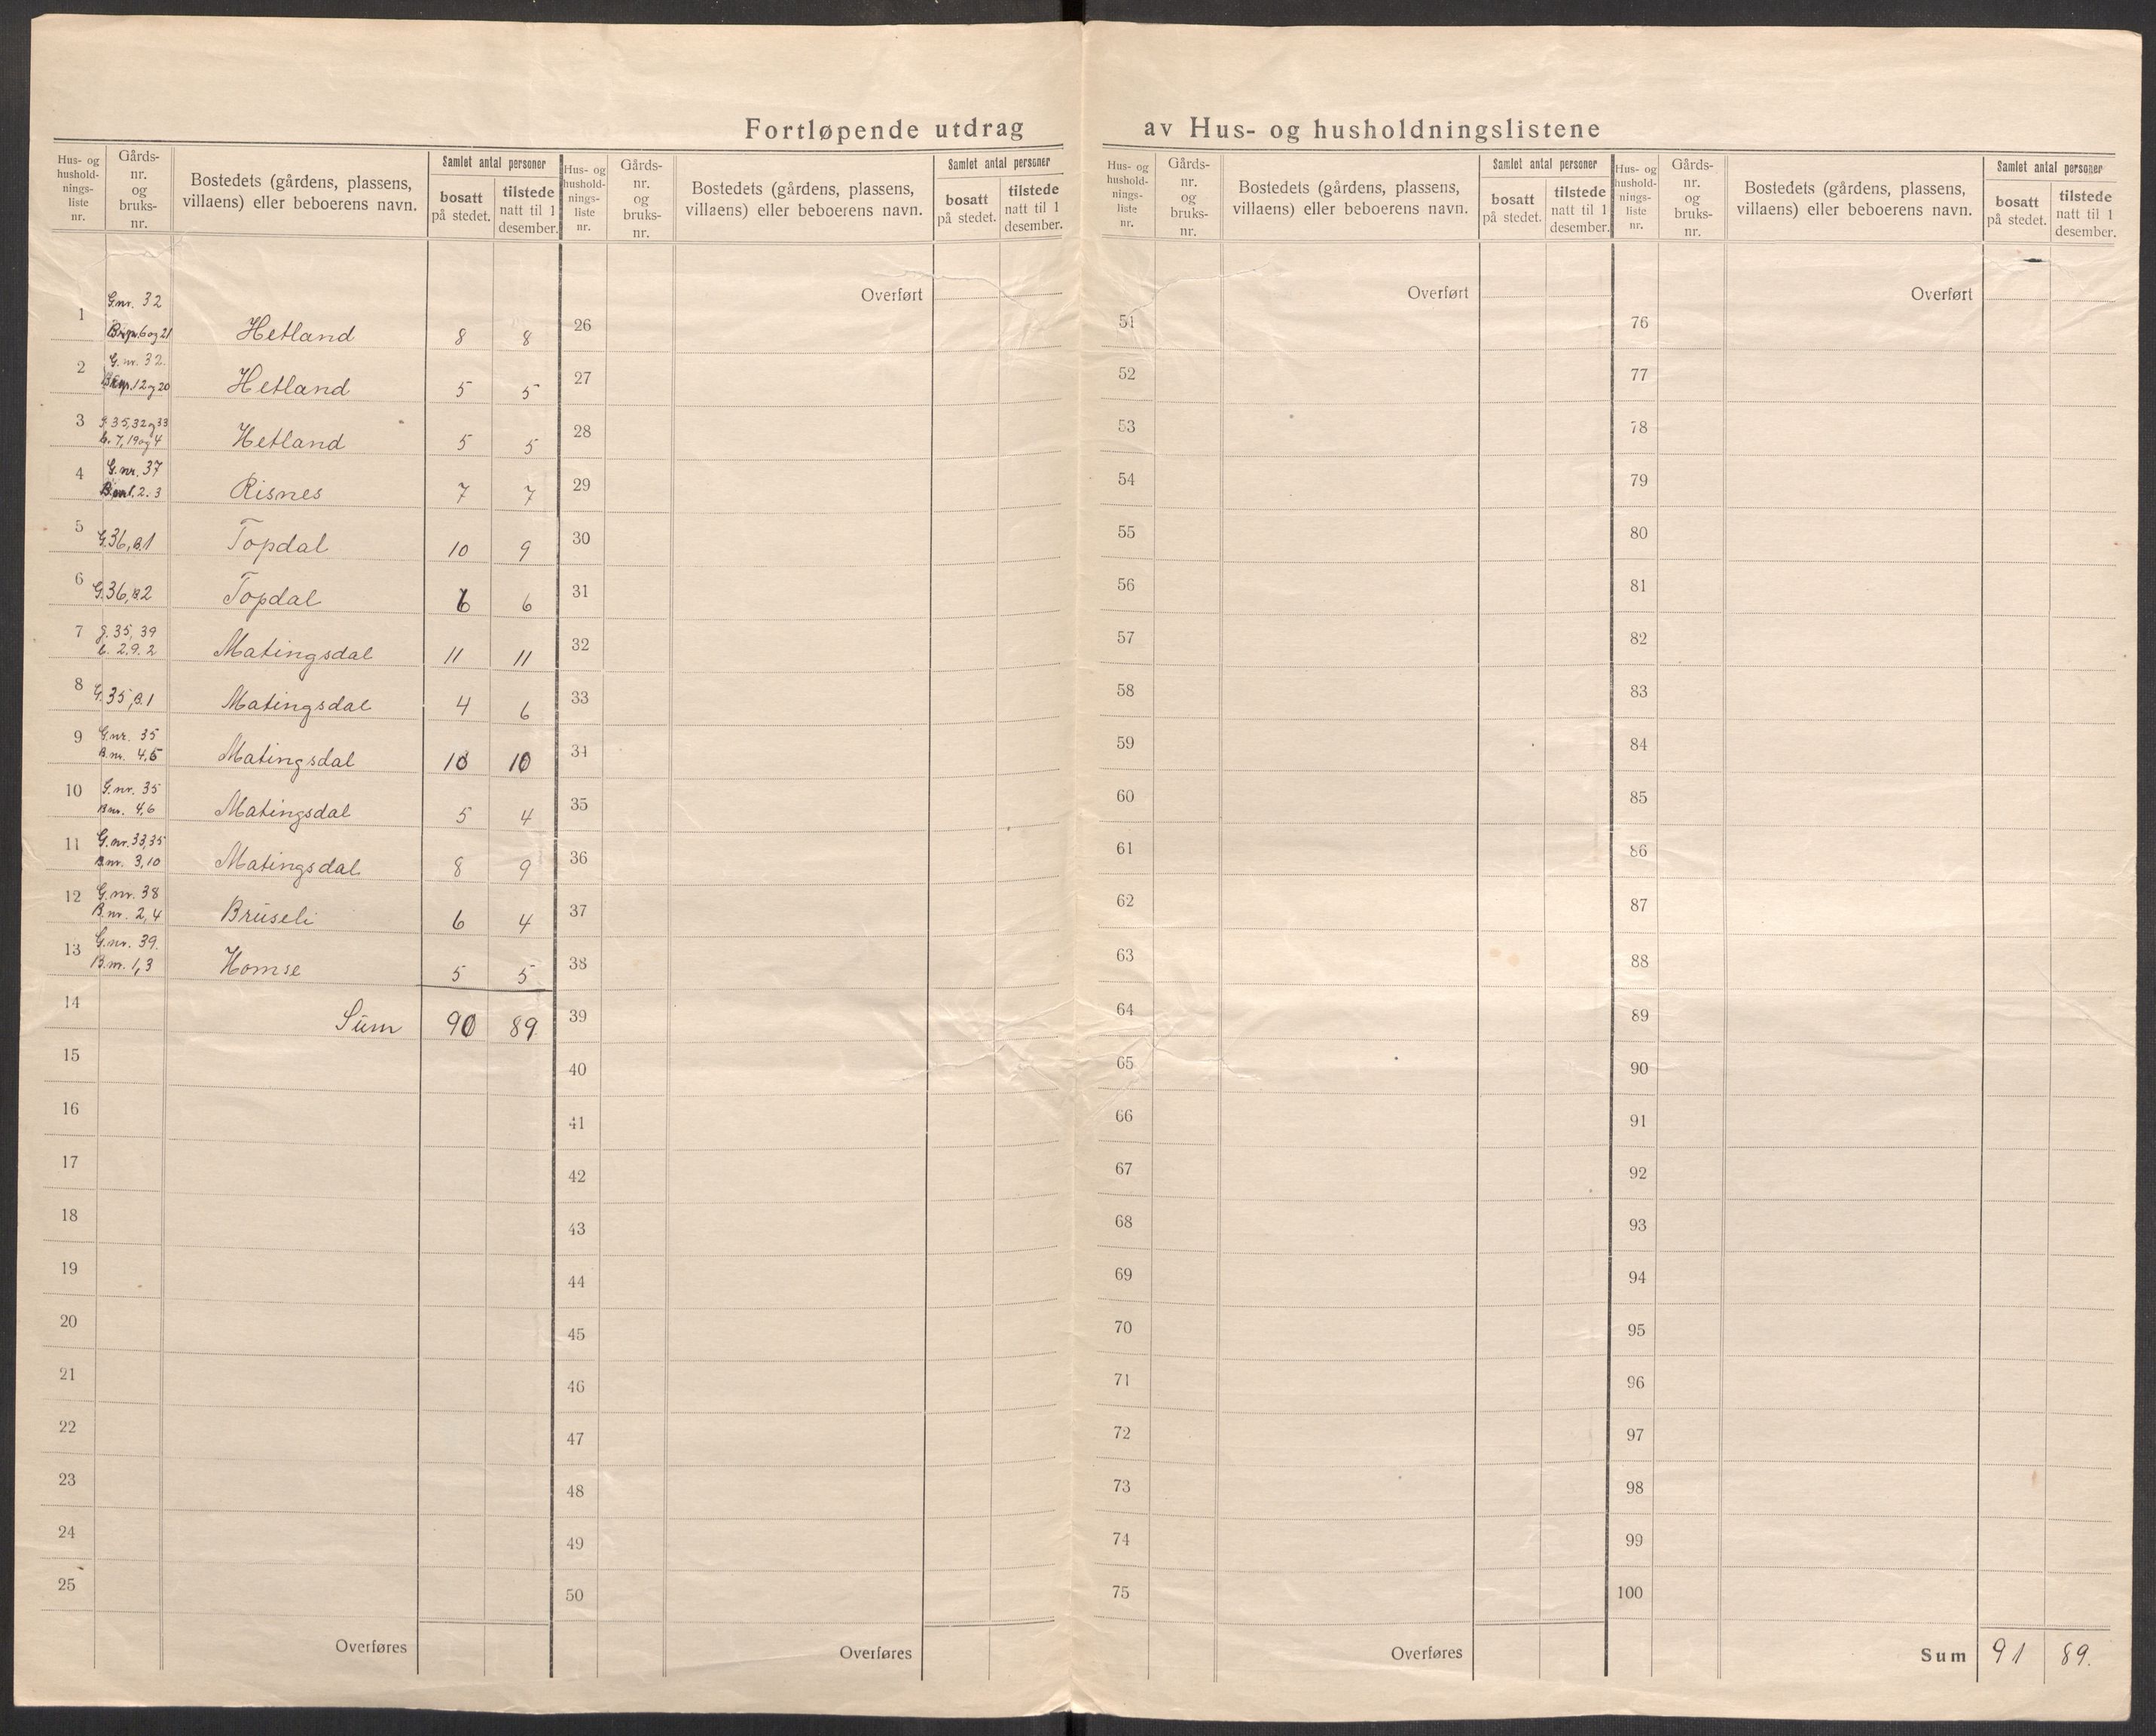 Fortløpende utdrag av Hus- og husholdningslistene
Hus- og hushold- nings- liste nr. Gårds- nr. og bruks- nr. Bostedets (gårdens, plassens, villaens) eller beboerens navn. Samlet antal personer bosatt på stedet. tilstede natt til 1 desember.
Hus- og hushold- nings- liste nr. Gårds- nr. og bruks- nr. Bostedets (gårdens, plassens, villaens) eller beboerens navn. Samlet antal personer bosatt på stedet. tilstede natt til 1 desember.
Hus- og hushold- nings- liste nr. Gårds- nr. og bruks- nr. Bostedets (gårdens, plassens, villaens) eller beboerens navn. Samlet antal personer bosatt på stedet. tilstede natt til 1 desember.
Hus- og hushold- nings- liste nr. Gårds- nr. og bruks- nr. Bostedets (gårdens, plassens, villaens) eller beboerens navn. Samlet antal personer bosatt på stedet. tilstede natt til 1 desember.
Overført Overført Overført
1 G.nr. 32 B.nr. 6 og 21 Hetland 8 8
2 G.nr. 32. B.nr. 12 og 20 Hetland 5 5
3 g. 35, 32 og 33 b. 7, 19 og 4 Hetland 5 5
4 G.nr. 37 B.nr 1. 2. 3 Risnes 7 7
5 G.36, B.1 Topdal 10 9
6 G.36, B.2 Topdal 6 6
7 g. 35, 39 b. 2.9. 2 Matingsdal 11 11
8 G.35, B.1 Matingsdal 4 6
9 G.nr. 35 B.nr. 4,5 Matingsdal 10 10
10 G.nr. 35 B.nr. 4,6 Matingsdal 5 4
11 G.nr. 33,35 B.nr. 3,10 Matingsdal 8 9
12 G.nr. 38 B.nr. 2,4 Brŭseli 6 4
13 G.nr. 39. B.nr. 1,3 Homse 5 5
14 Sŭm 90 89
15
16
17
18
19
20
21
22
23
24
25
Overføres
26
27
28
29
30
31
32
33
34
35
36
37
38
39
40
41
42
43
44
45
46
47
48
49
50
Overføres
51
52
53
54
55
56
57
58
59
60
61
62
63
64
65
66
67
68
69
70
71
72
73
74
75
Overføres
76
77
78
79
80
81
82
83
84
85
86
87
88
89
90
91
92
93
94
95
96
97
98
99
100
Sum 91 89.